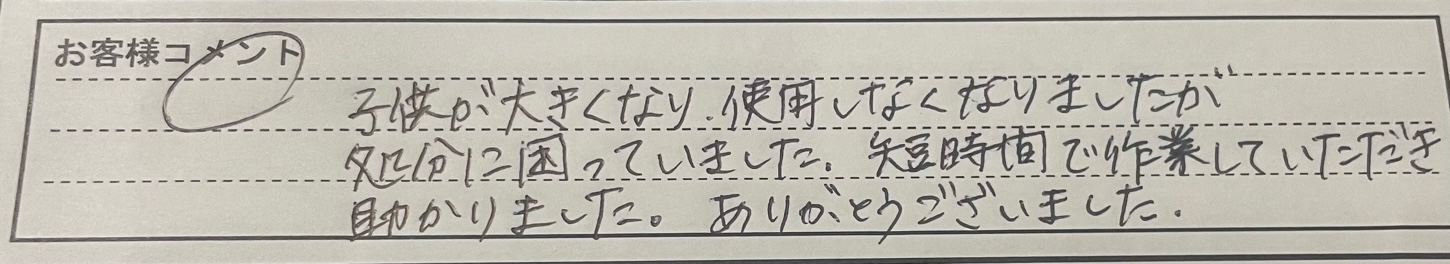 お客様コメント
子供が大きくなり、使用しなくなりましたが
処分に困っていました。短時間で作業していただき
助かりました。ありがとうございました。